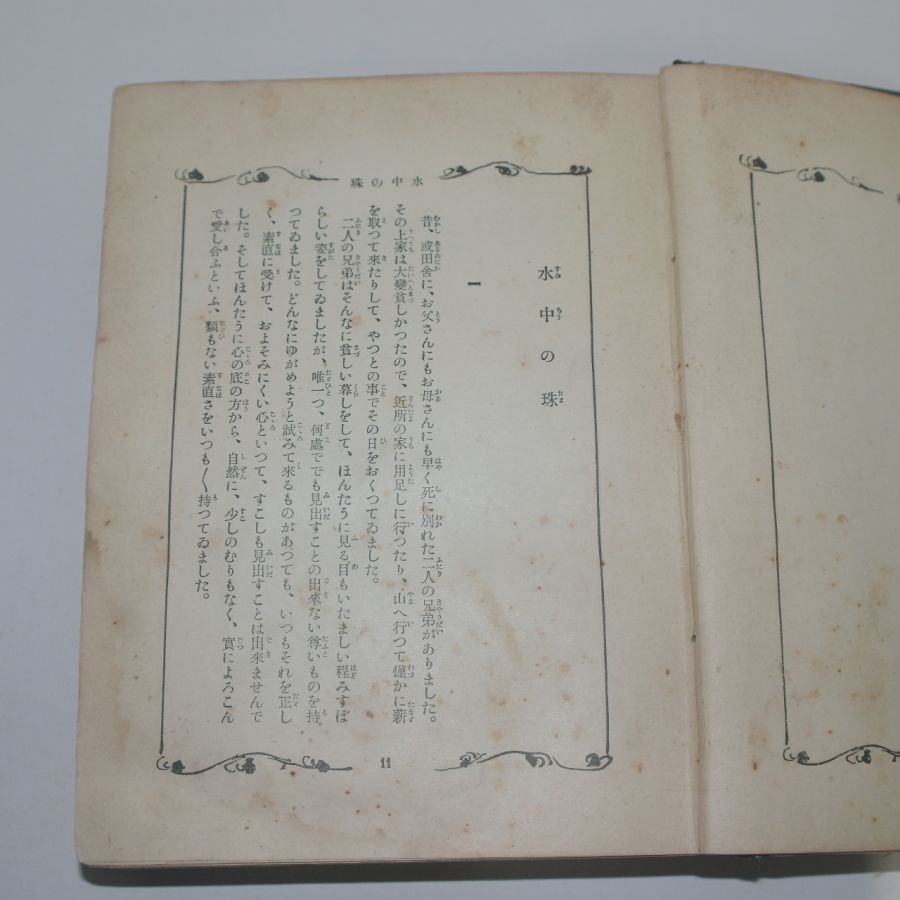 水中の珠
水中の珠
一
昔、或田舍に、お父さんにもお母さんにも早く死に別れた二人の兄弟がありました。
その上家は大變貧しかつたので、近所の家に用足しに行つたり、山へ行つて僅かに薪
を取つて來たりして、やつとの事でその日をおくつてゐました。
二人の兄弟はそんなに貧しい暮しをして、ほんたうに見る目もいたましい程みすぼ
らしい姿をしてゐましたが、唯一つ、何處ででも見出すことの出來ない尊いものを持
つてゐました。どんなにゆがめようと試みて來るものがあつても、いつもそれを正し
く、素直に受けて、およそみにくい心といつて、すこしも見出すことは出來ませんで
した。そしてほんたうに心の底の方から、自然に、少しのむりもなく、實によろこん
で愛し合ふといふ、類もない素直さをいつも〱持つてゐました。
11